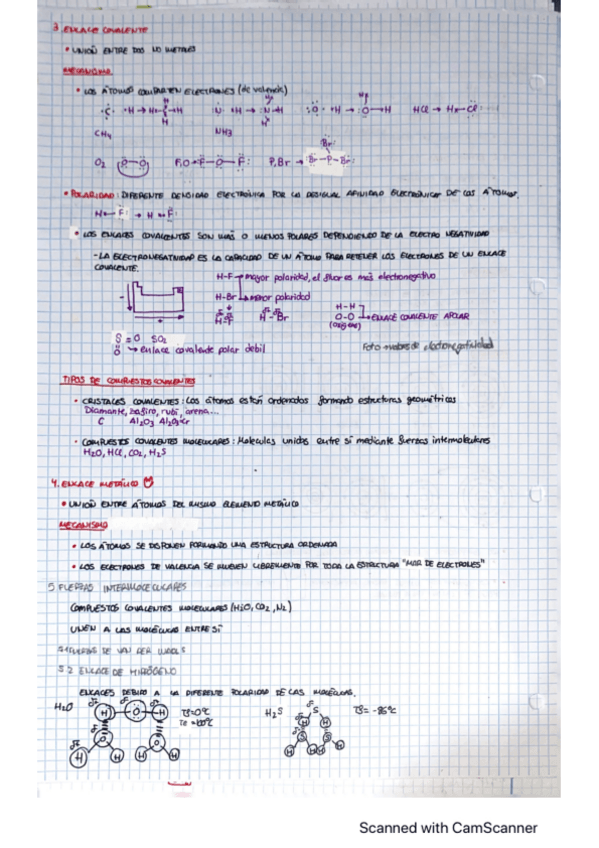 3. ENLACE COVALENTE
• UNIÓN ENTRE DOS NO METALES
MECANISMO
• LOS ÁTOMOS COMPARTEN ELECTRONES (de valencia)
CH4 NH3
O2
• POLARIDAD: DIFERENTE DENSIDAD ELECTRÓNICA POR LA DESIGUAL AFINIDAD ELECTRÓNICA DE LOS ÁTOMOS.
• LOS ENLACES COVALENTES SON MÁS O MENOS POLARES DEPENDIENDO DE LA ELECTRO NEGATIVIDAD
- LA ELECTRONEGATIVIDAD ES LA CAPACIDAD DE UN ÁTOMO PARA RETENER LOS ELECTRONES DE UN ENLACE
COVALENTE.
H-F → mayor polaridad, el fluor es más electronegativo
H-Br → menor polaridad
H-H
O-O → ENLACE COVALENTE APOLAR
(oxígeno)
S=O SO2
→ enlace covalente polar debil
Foto valores de electronegatividad
TIPOS DE COMPUESTOS COVALENTES
• CRISTALES COVALENTES: Los átomos están ordenados formando estructuras geométricas
Diamante, zafiro, rubí, arena...
C Al2O3 Al2O3Cr
• COMPUESTOS COVALENTES MOLECULARES: Moleculas unidas entre sí mediante fuerzas intermoleculares
H2O, HCl, CO2, H2S
4. ENLACE METÁLICO
• UNIÓN ENTRE ÁTOMOS DEL MISMO ELEMENTO METÁLICO
MECANISMO
• LOS ÁTOMOS SE DISPONEN FORMANDO UNA ESTRUCTURA ORDENADA
• LOS ELECTRONES DE VALENCIA SE MUEVEN LIBREMENTE POR TODA LA ESTRUCTURA "MAR DE ELECTRONES"
5 FUERZAS INTERMOLECULARES
COMPUESTOS COVALENTES MOLECULARES (H2O, CO2, N2)
UNEN A LAS MOLÉCULAS ENTRE SÍ
FUERZAS DE VAN DER WAALS
5.2 ENLACE DE HIDRÓGENO
ENLACES DEBIDO A LA DIFERENTE POLARIDAD DE LAS MOLÉCULAS.
H2O H2S
Scanned with CamScanner